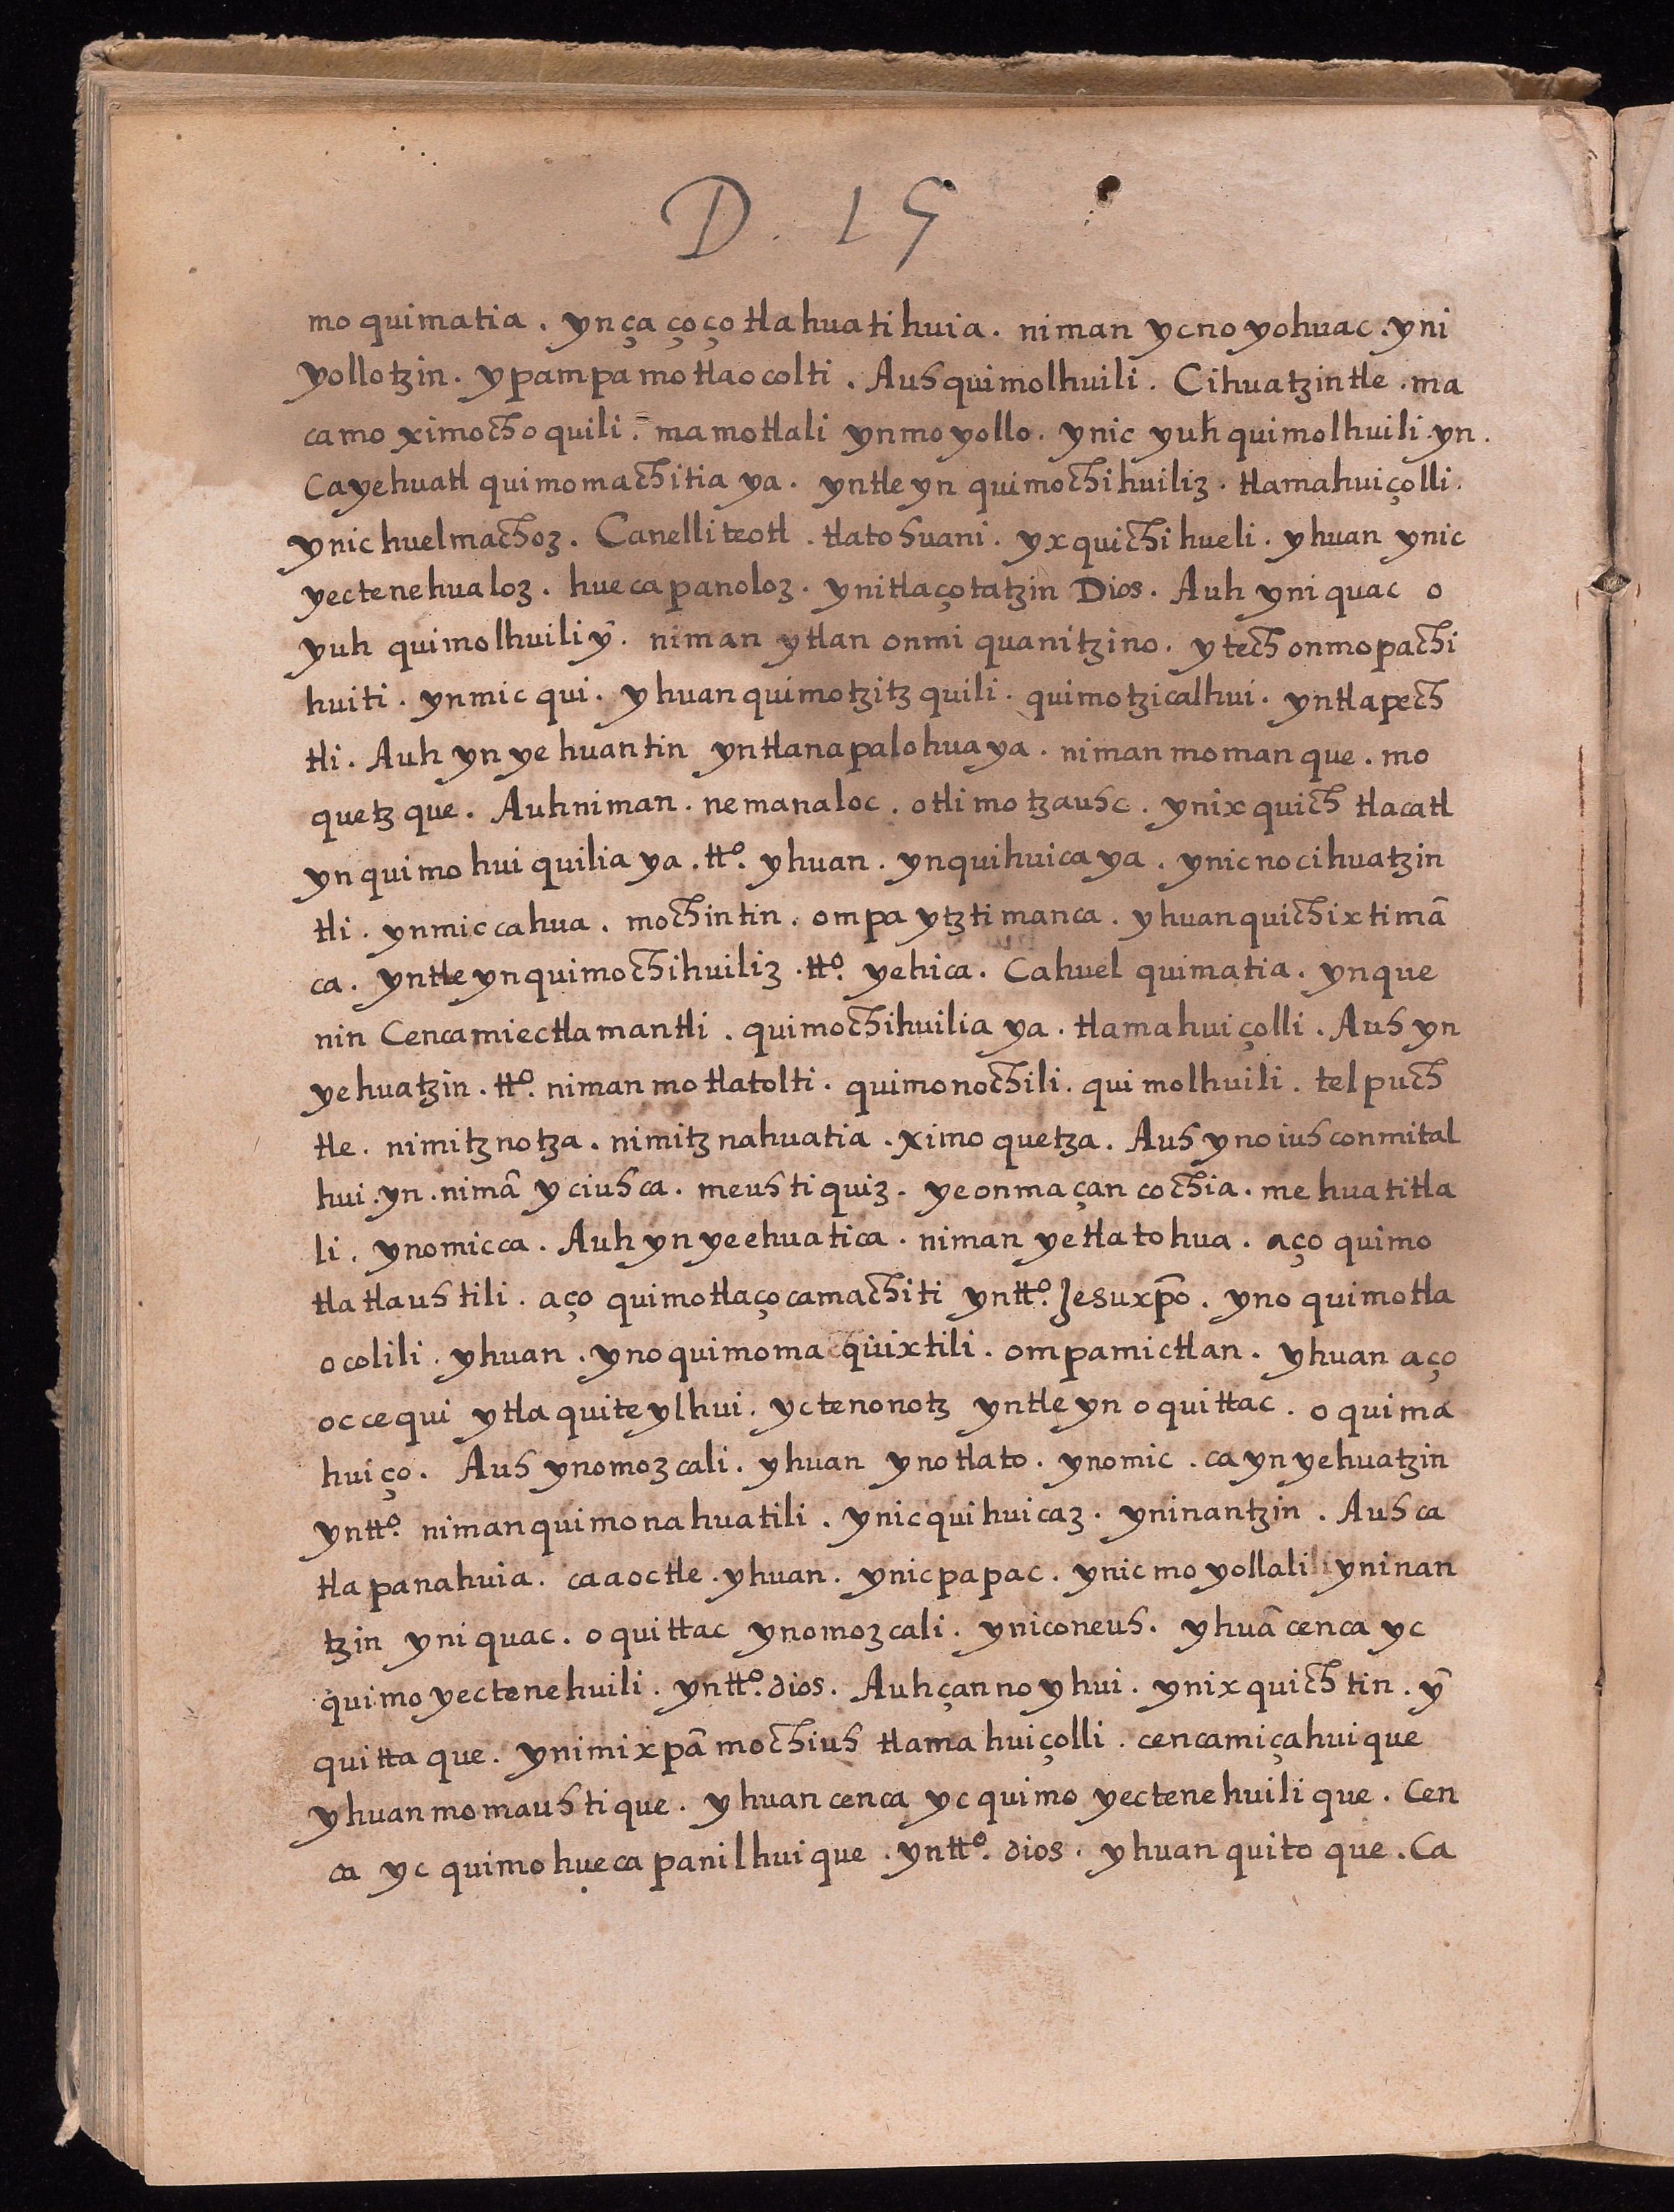 D. 15
mo quimatia. ynça çoço tlahuatihuia. niman ycnoyohuac. yni
yollotzin. ypampa motlaocolti. Auh quimolhuili. Cihuatzintle. ma
camo ximochoquili. ma motlali ynmoyollo. ynic yuh quimolhuili. yn.
Cayehuatl quimomachitia ya. yntleyn quimochihuiliz. tlamahuiçolli.
ynic huelmachoz. Canelli teotl. tlatohuani. yxquichihueli. yhuan ynic
yectenehualoz. huecapanoloz. ynitlaçotatzin Dios. Auh yniquac o
yuh quimolhuili yn̄. niman ytlan onmiquanitzino. ytech onmopachi
huiti. ynmicqui. yhuan quimotzitzquili. quimotzicalhui. yntlapech
tli. Auh ynyehuantin yntlanapalohuaya. niman momanque. mo
quetzque. Auh niman. nemanaloc. otli motzauhc. ynixquich tlacatl
ynquimohuiquiliaya. tt.º yhuan. ynquihuicaya. ynicnocihuatzin
tli. ynmiccahua. mochintin. ompa ytztimanca. yhuan quichixtimā
ca. yntleynquimochihuiliz. tt.º yehica. Cahuel quimatia. ynque
nin Cencamiectlamantli. quimochihuiliaya. tlamahuiçolli. Auh yn
yehuatzin. tt.º niman motlatolti. quimonochili. quimolhuili. telpuch
tle. nimitznotza. nimitznahuatia. ximoquetza. Auh ynoiuh conmital
hui. yn. nimā yciuhca. meuhtiquiz. yeonmaçan cochia. mehuatitla
li. ynomicca. Auh ynyeehuatica. niman yetlatohua. aço quimo
tlatlauhtili. aço quimotlaçocamachiti yntt.º Jesuxp̄o. yno quimotla
ocolili. yhuan. ynoquimomaquixtili. ompamictlan. yhuan aço
occequi ytla quiteylhui. yctenonotz yntleyn oquittac. oquima
huiço. Auh ynomozcali. yhuan ynotlato. ynomic. ca ynyehuatzin
yntt.º niman quimonahuatili. ynic quihuicaz. yninantzin. Auh ca
tlapanahuia. caaoctle. yhuan. ynicpapac. ynic moyollali yninan
tzin yniquac. oquittac ynomozcali. yniconeuh. yhuā cenca yc
quimoyectenehuili. yntt.º dios. Auh çannoyhui. ynixquichtin. yn̄
quittaque. ynimixpā mochiuh tlamahuiçolli. cencamiçahuique
yhuan momauhtique. yhuan cenca yc quimoyectenehuilique. Cen
ca yc quimohuecapanilhuique. yntt.º dios. yhuan quitoque. Ca